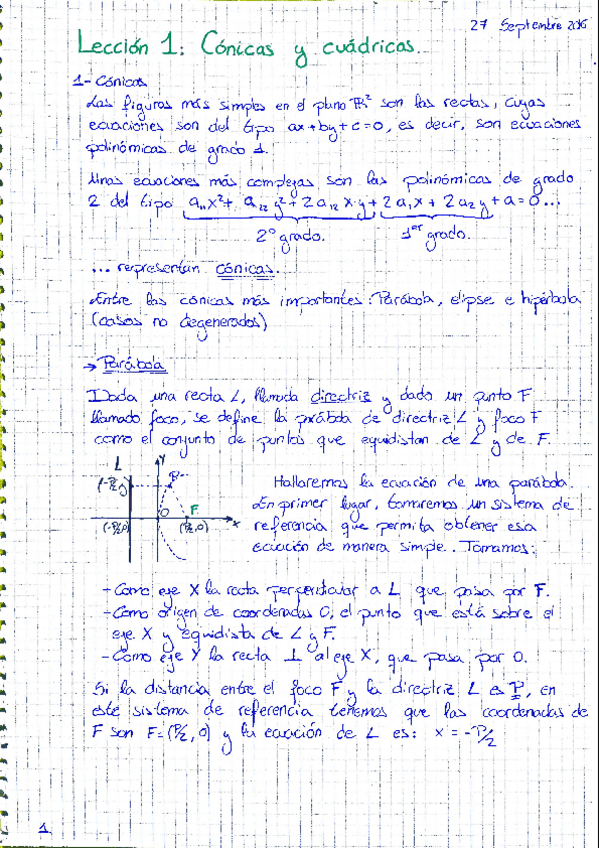 27 Septembre 2016
Lección 1: Cónicas y cuádricas.
1- Cónicas
Las figuras más simples en el plano ℝ² son las rectas, cuyas
ecuaciones son del tipo ax+by+c=0, es decir, son ecuaciones
polinómicas de grado 1.
Unas ecuaciones más complejas son las polinómicas de grado
2 del tipo a₁₁x²+ a₂₂y²+2a₁₂x·y+2a₁x+2a₂y+a=0...
2º grado. 1er grado.
... representan cónicas.
Entre las cónicas más importantes: Parábola, elipse e hipérbola
(casos no degenerados)
→ Parábola
Dada una recta L, llamada directriz y dado un punto F
llamado foco, se define la parábola de directriz L y foco F
como el conjunto de puntos que equidistan de L y de F.
L Y
(-P/2,y) P
Hallaremos la ecuación de una parábola.
En primer lugar, tomaremos un sistema de
O F
(-P/2,0) (P/2,0) X
referencia que permita obtener esa
ecuación de manera simple. Tomamos:
- Como eje X la recta perpendicular a L que pasa por F.
- Como origen de coordenadas O, el punto que está sobre el
eje X y equidista de L y F.
- Como eje Y la recta ⊥ al eje X, que pasa por O.
Si la distancia entre el foco F y la directriz L es P, en
este sistema de referencia tenemos que las coordenadas de
F son F=(P/2,0) y la ecuación de L es: x=-P/2
1